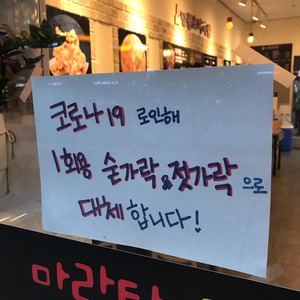 코로나19 로인해
1회용 숟가락&젓가락으로
대체 합니다!
마라탕